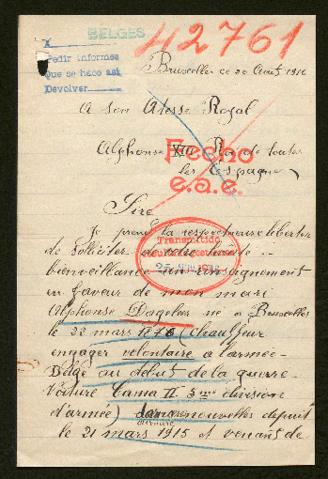 BELGES
42761
A
Pedir informes
Que se hace asi
Devolver
Bruxelles ce 20 Août 1916
A son Altesse Royal
Alphonse XIII Roi de toutes
les Espagnes
Fecho
e.a.e.
Sire
Je prend la respectueuse liberter
de solliciter de votre haute
bienveillance un renseignement
en faveur de mon mari
Alphonse né a Bruxelles
le 22 mars (chauffeur
engager volontaire a l'armée
Belge au début de la guerre
Voiture II 3me division
d'armée) nouvelles depuit
dernière
le 21 mars 1915 et venant de
Transmitido